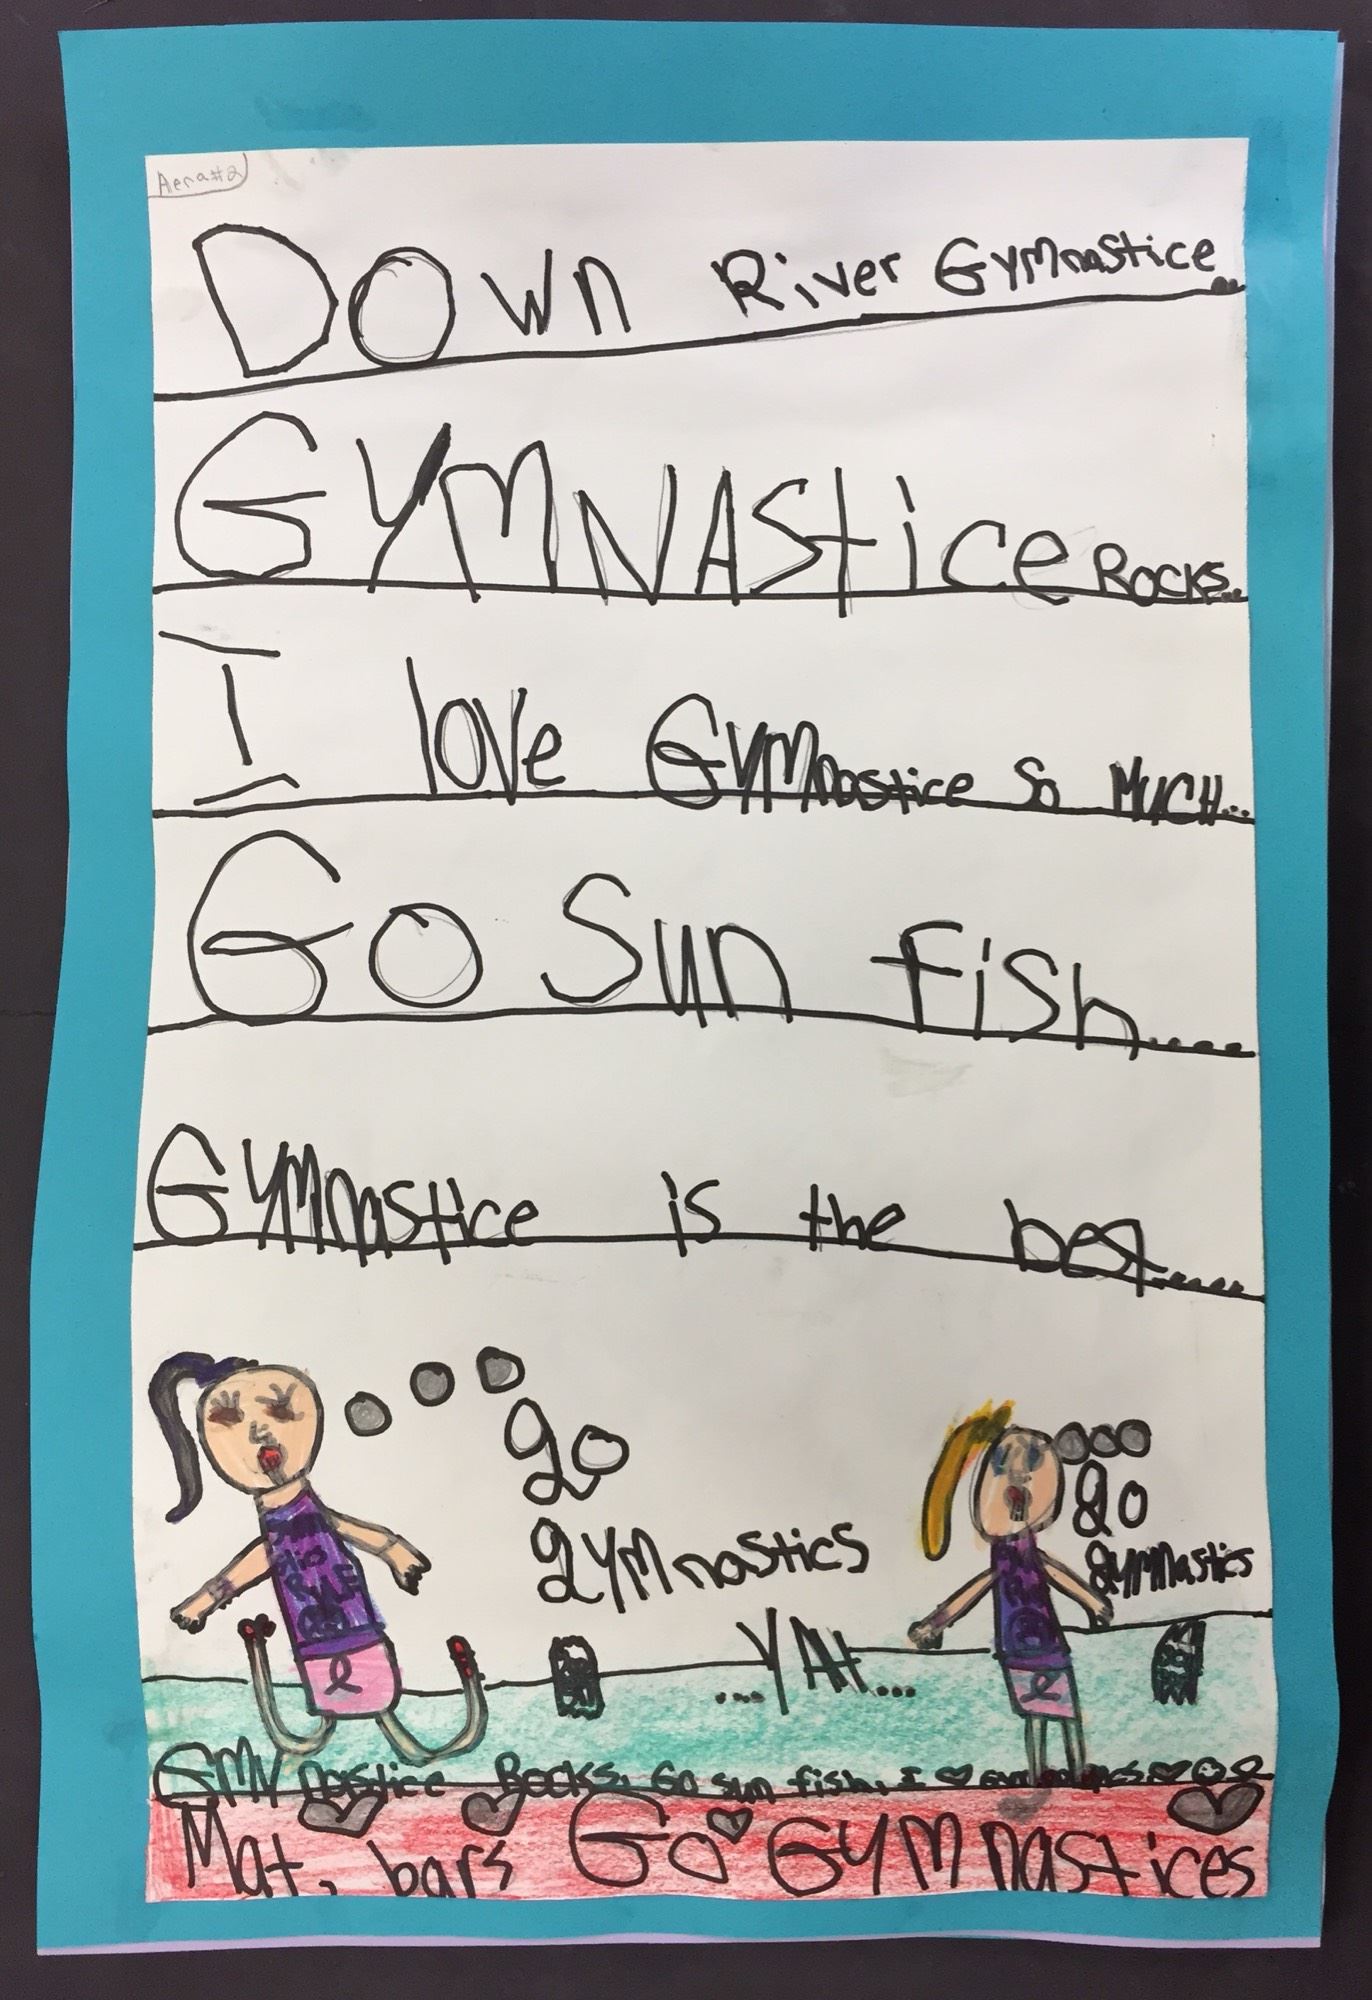 Aera#2
Down River Gymnastice..
GYMNAStice Rocks..
I love Gymnastice so MUCH...
Go Sun fish....
Gymnastice is the best.....
go
gymnastics
go
gymnastics
...YAH...
GMYnastice Rocks. Go sun fish. I
Mat, bars Go GYMnastices